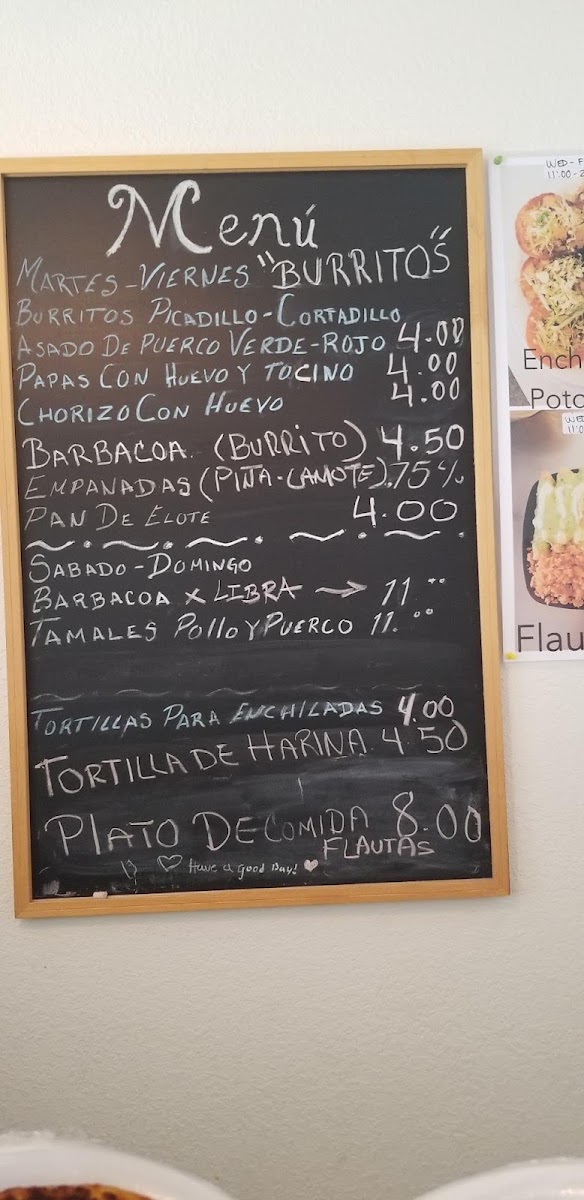 Menú
MARTES-VIERNES "BURRITOS"
BURRITOS PICADILLO-CORTADILLO
ASADO DE PUERCO VERDE-ROJO 4.00
PAPAS CON HUEVO Y TOCINO 4.00
CHORIZO CON HUEVO 4.00
BARBACOA (BURRITO) 4.50
EMPANADAS (PIÑA-CAMOTE) .75%
PAN DE ELOTE 4.00
SABADO-DOMINGO
BARBACOA X LIBRA → 11.00
TAMALES POLLO Y PUERCO 11.00
TORTILLAS PARA ENCHILADAS 4.00
TORTILLA DE HARINA 4.50
PLATO DE COMIDA 8.00
FLAUTAS
Have a Good Day!
WED-F
11:00-2
Ench
Poto
WED
11:0
Flau